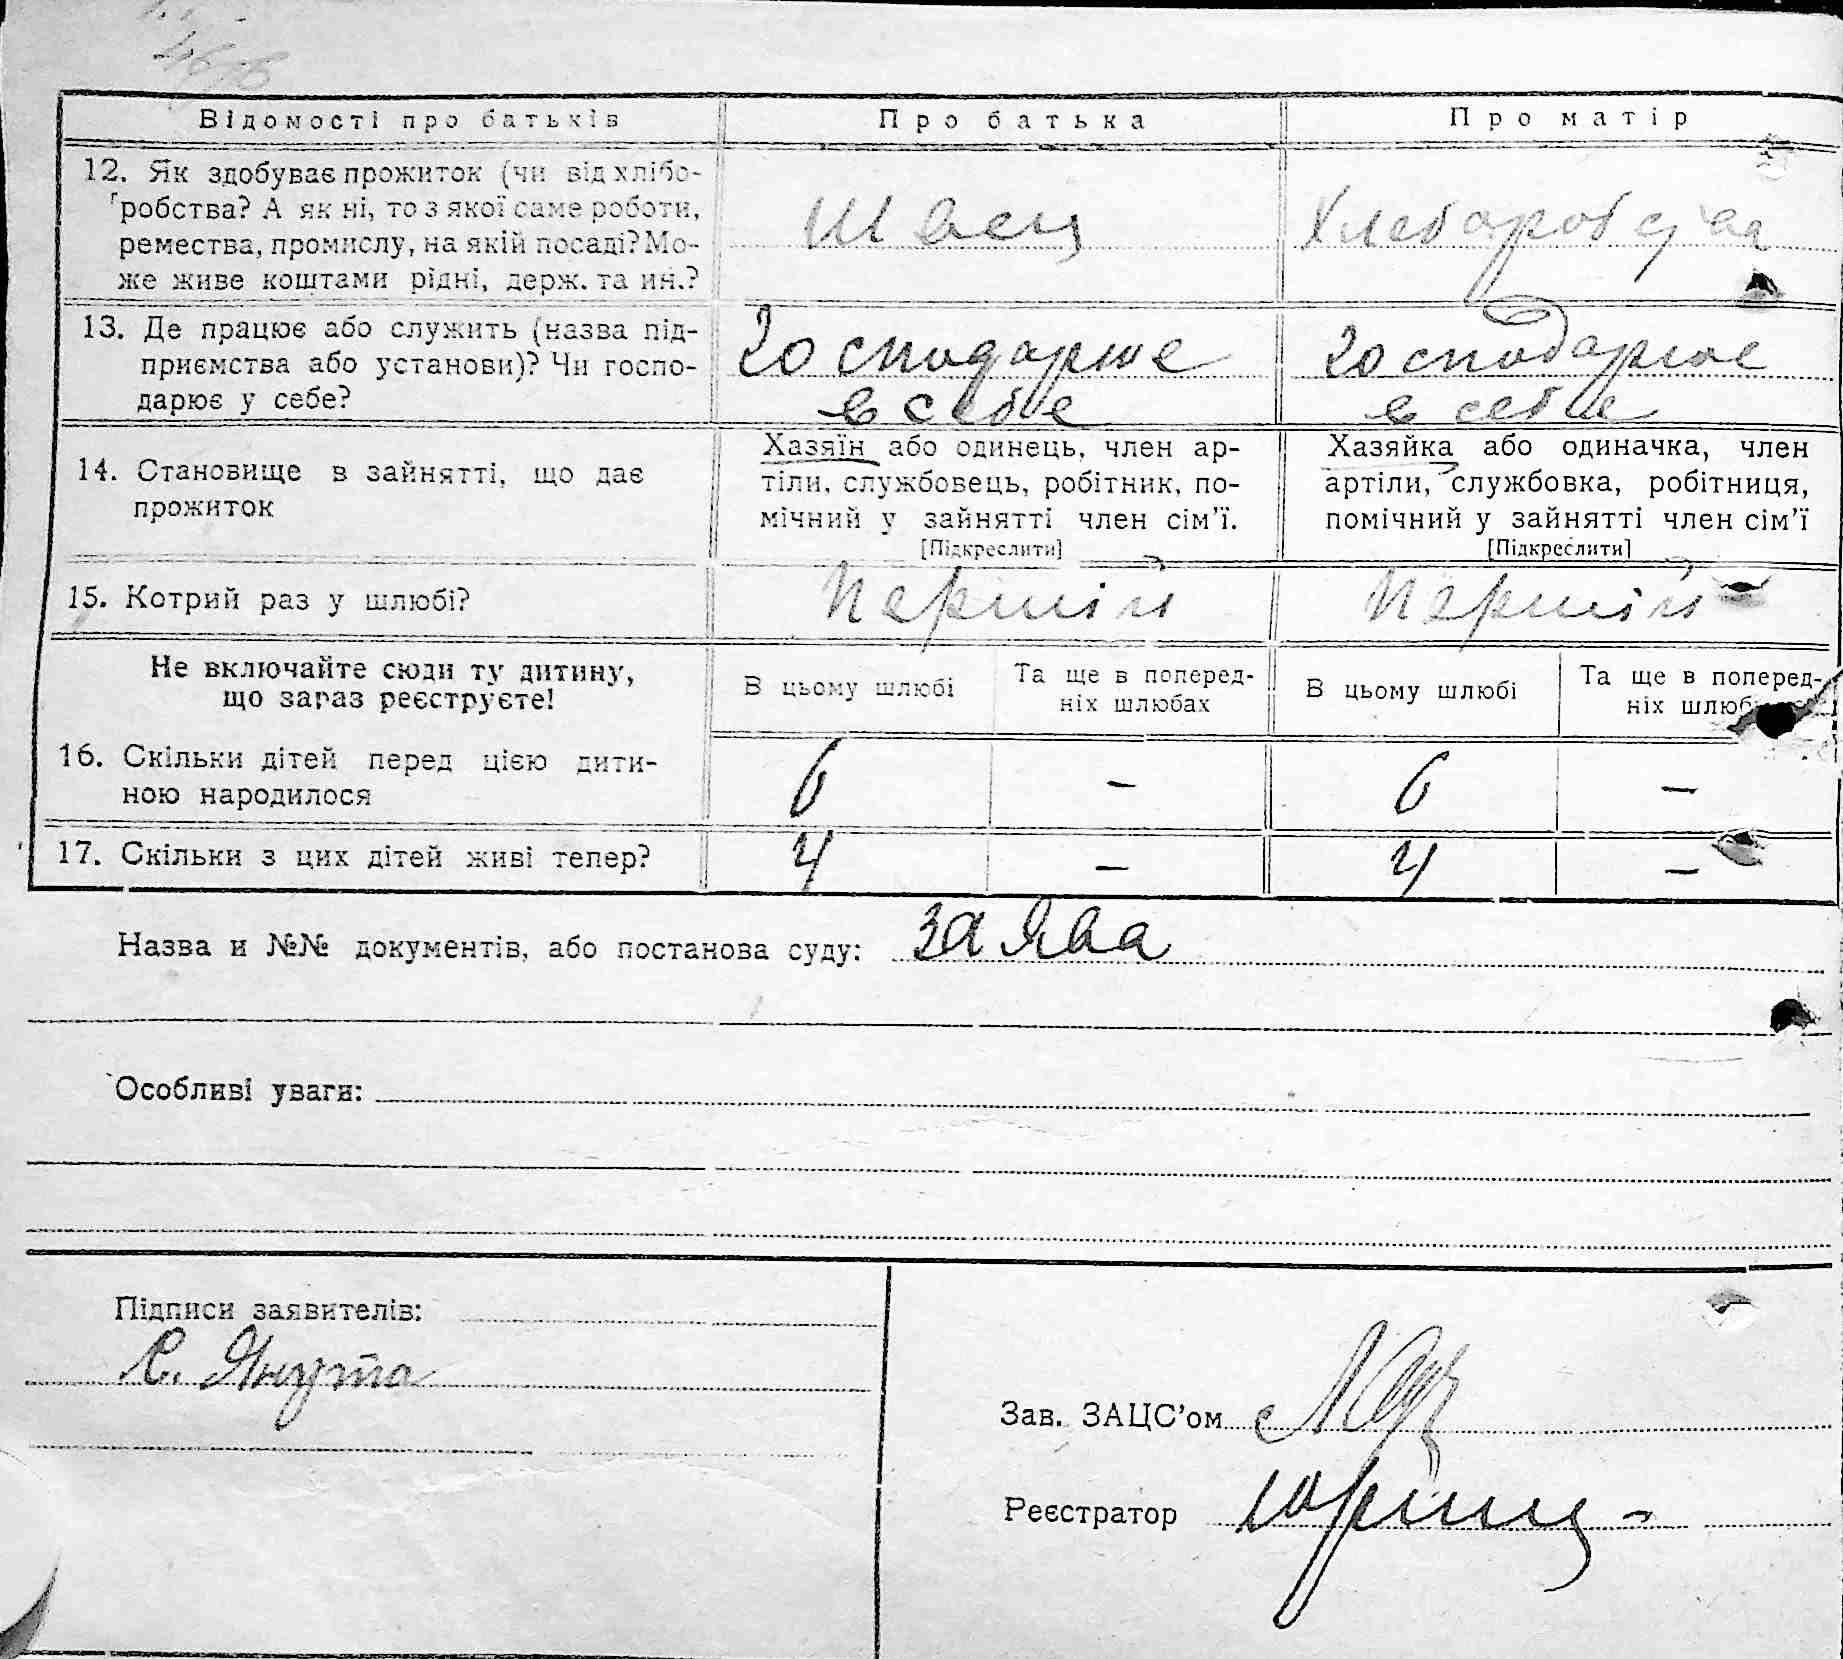 Відомості про батьків Про батька Про матір
12. Як здобуває прожиток (чи від хлібо-
робства? А як ні, то з якої саме роботи,
ремества, промислу, на якій посаді? Мо-
же живе коштами рідні, держ. та ин.?
Швец
13. Де працює або служить (назва під-
приємства або установи)? Чи госпо-
дарює у себе?
господарює
в себе
господарює
в себе
14. Становище в зайнятті, що дає
прожиток
Хазяїн або одинець, член ар-
тіли, службовець, робітник, по-
мічний у зайнятті член сім'ї.
[Підкреслити]
Хазяйка або одиначка, член
артіли, службовка, робітниця,
помічний у зайнятті член сім'ї
[Підкреслити]
15. Котрий раз у шлюбі? Першій Першій
Не включайте сюди ту дитину,
що зараз реєструєте!
В цьому шлюбі
Та ще в поперед-
ніх шлюбах
В цьому шлюбі
Та ще в поперед-
ніх
16. Скільки дітей перед цією дити-
ною народилося
6 – 6 –
17. Скільки з цих дітей живі тепер? 4 – 4 –
Назва и №№ документів, або постанова суду: заява
Особливі уваги:
Підписи заявителів:
С. Янута
Зав. ЗАЦС'ом
Реєстратор